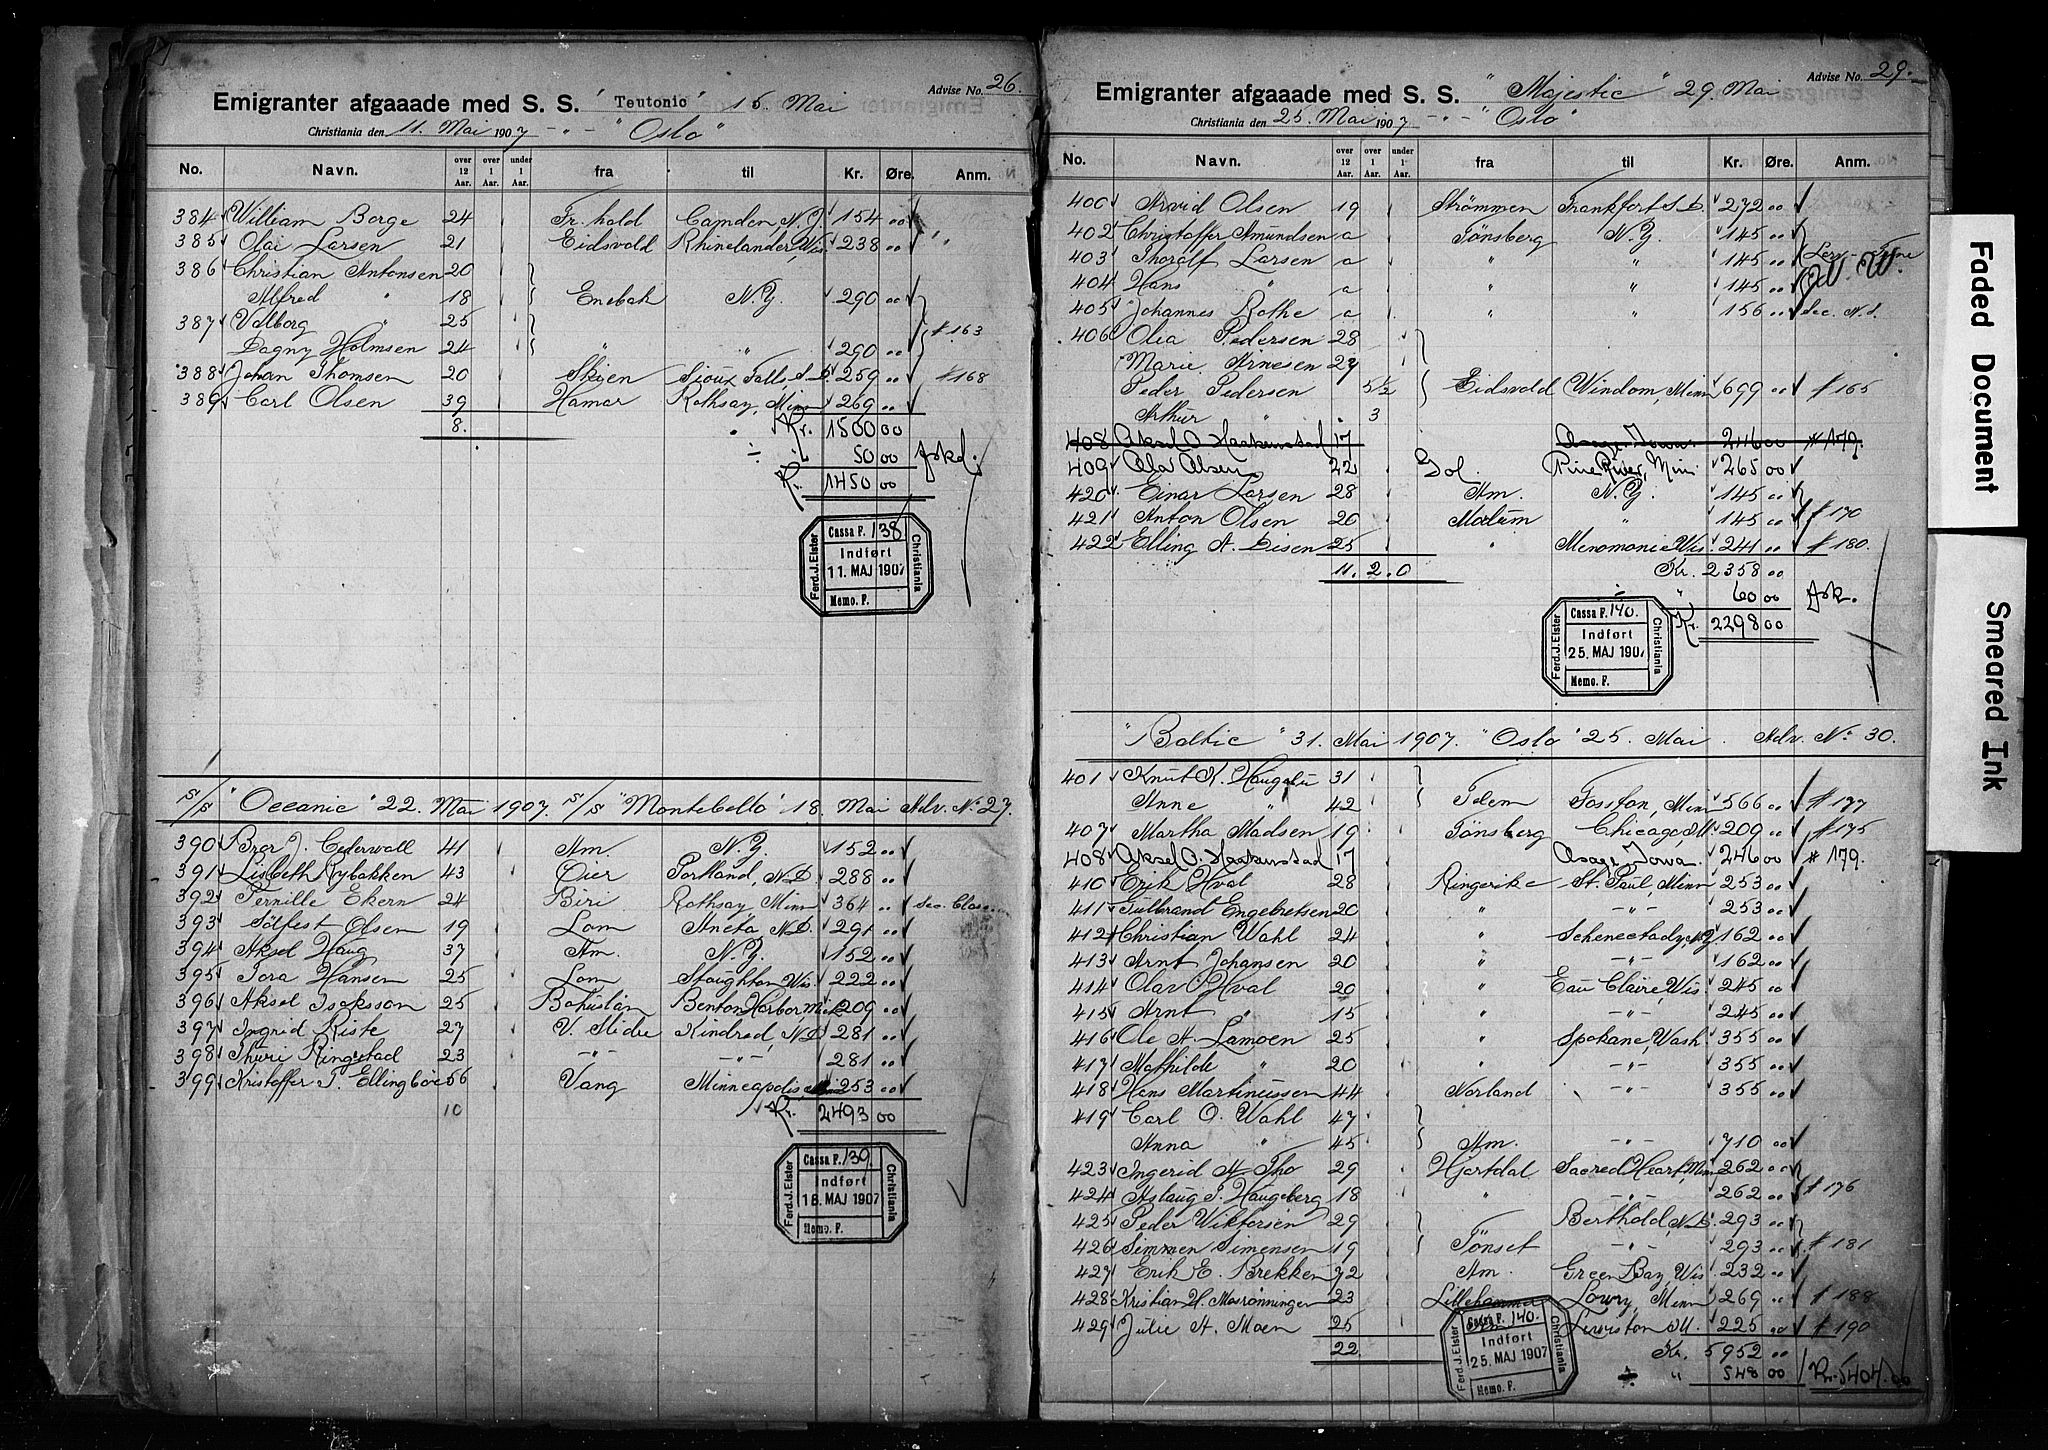 Advise No. 26.
Emigranter afgaaade med S. S. "Teutonic" 15. Mai
Christiania den 11. Mai 1907 -"- "Oslo"
No. Navn. over 12 Aar. over 1 Aar. under 1 Aar. fra til Kr. Øre. Anm.
384 William Borge 24 Fr.hald Camden, N.Y. 154 00
385 Olai Larsen 21 Eidsvold Rhinelander, Wis. 238 00
386 Christian Antonsen 20
Alfred " 18 Enebak N.Y. 290 00
387 Valborg " 25 # 163
Dagny Holmsen 24 " " 290 00
388 Johan Thomsen 20 Skien Sioux Falls, S.D. 259 00 # 168
389 Carl Olsen 39 Hamar Rothsay, Minn 269 00
8. Kr. 1500 00
÷ 50 00
Kr. 1450 00
Cassa F. 138
Indført
11. MAJ 1907
Memo. F.
Ferd. J. Elster
Christiania
s/s "Oceanic" 22. Mai 1907. s/s "Montebello" 18. Mai Adv. No 27.
390 Bror J. Cederwall 41 Am. N.Y. 152 00
391 Lisbeth Rybakken 43 Øier Portland, N.D. 288 00
392 Pernille Ekern 24 Biri Rothsay Minn 364 00 Sec. Class
393 Sölfest Olsen 19 Lom Aneta, N.D. 291 00
394 Aksel Haug 37 Am. N.Y. 152 00
395 Tora Hansen 25 Lom Stoughton Wis. 222 00
396 Aksel Isaksson 25 Bohuslän Benton Harbor, Mich 209 00
397 Ingrid Kiste 27 V. Slidre Kindred, N.D. 281 00
398 Thuri Ringestad 23 -"- -"- 281 00
399 Kristoffer T. Ellingböe 56 Vang Minneapolis, Minn 253 00
10 Kr. 2493 00
Cassa F. 139.
Indført
18. MAJ 1907
Memo. F.
Ferd. J. Elster
Christiania
Advise No. 29.
Emigranter afgaaade med S. S. "Majestic" 29. Mai
Christiania den 25. Mai 1907 -"- "Oslo"
No. Navn. over 12 Aar. over 1 Aar. under 1 Aar. fra til Kr. Øre. Anm.
400 Arvid Olsen 19 Strømmen Frankfort S.D. 272 00
402 Christoffer Amundsen a Tönsberg N.Y. 145 00
403 Thoralf Larsen a " " 145 00
404 Hans " a " " 145 00
405 Johannes Rothe a " " 156 00 Sec. N.S.
406 Olea Pedersen 28
Marie Arnesen 27
Peder Pedersen 5 1/2 Eidsvold Windom, Minn 699 00 # 165
Arthur " 3
408 Aksel O. Haakenstad 17 Osage, Iowa 246 00 # 179.
409 Ola Olsen 22 Gol. Pine River, Minn 265 00
420 Einar Larsen 28 Am. N.Y. 145 00
421 Anton Olsen 20 Modum " 145 00 # 170
422 Elling A. Disen 25 " Menomonie Wis. 241 00 # 180.
11. 2. 0 Kr. 2358 00
" 60 00
Kr. 2298 00
Cassa F. 140.
Indført
25. MAJ 1907
Memo. F.
Ferd. J. Elster
Christiania
"Baltic" 31. Mai 1907. "Oslo" 25. Mai. Adv. No 30.
401 Knut K. 31
Anne " 42 Tdem Fosston, Minn 566 00 # 177
407 Martha Madsen 19 Tönsberg Chicago, Ill. 209 00 # 175
408 Aksel O. Haakenstad 17 Osage, Iowa. 246 00 # 179.
410 Erik Hval 28 Ringerike St. Paul, Minn 253 00
411 Gulbrand Engebretsen 20 " -"- 253 00
412 Christian Wahl 24 " Schenectady, N.Y 162 00
413 Arnt Johansen 20 " -"- 162 00
414 Olav Hval 20 " Eau Claire, Wis. 245 00
415 Arnt " 15 " -"- 245 00
416 Ole A. Lamoen 25 " Spokane, Wash 355 00
417 Mathilde " 20 " -"- 355 00
418 Hans Martinussen 44 Norland -"- 355 00
419 Carl O. Wahl 47
Anna " 45 Am. -"- 710 00
423 Ingerid A. Tho 29 Hjartdal Sacred Heart, Minn 262 00
424 Aslaug T. Haugeberg 18 " -"- 262 00 # 176
425 Peder Wiktorsen 29 Berthold, N.D. 293 00
426 Simmen Simensen 19 Tönset -"- 293 00 # 181
427 Erik E. Brekken 32 Am. Green Bay, Wis 232 00
428 Kristian H. Mosrönningen 23 Lillehammer Lowry, Minn 269 00 # 188
429 Julie A. Moen 25 Lewiston Ill. 225 00 # 190
22 Kr. 5952 00
÷ " 548 00 Kr. 5404.00
Cassa F. 140.
Indført
25. MAJ 1907
Memo. F.
Ferd. J. Elster
Christiania
Faded Document
Smeared Ink